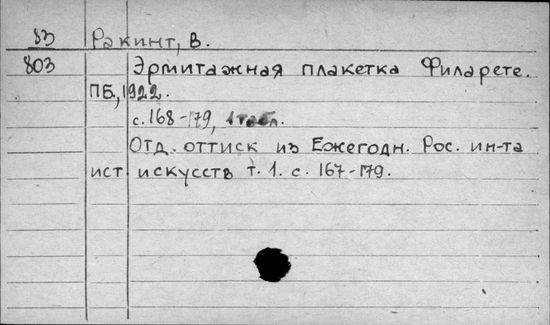 83 Ракинт, В.
803 Эрмитажная плакетка Филарете.
ПБ, 1922.
с. 168-179, 1 табл.
Отд. оттиск из Ежегодн. Рос. ин-та
ист искусств т. 1. с. 167-179.